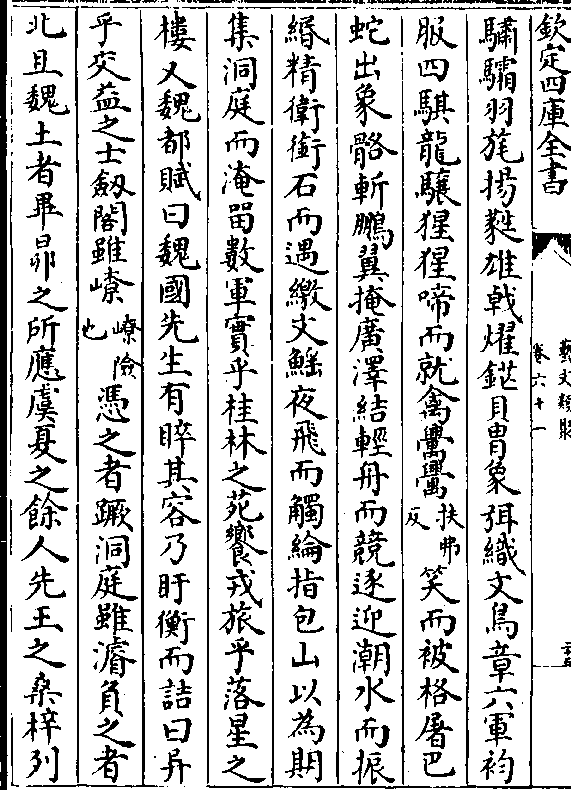 欽定四庫全書
藝文類聚
卷六十一
驌驦羽旄揚蕤雄戟燿鋩貝冑象弭織文鳥章六軍袀
服四騏龍驤猩猩啼而就禽𤲞𤲞扶弗反笑而被格屠巴
蛇出象骼斬鵬翼掩廣澤結輕舟而競逐迎潮水而振
緡精衛銜石而遇繳文鰩夜飛而觸綸指包山以為期
集洞庭而淹留數軍實乎桂林之苑饗戎旅乎落星之
樓又魏都賦曰魏國先生有睟其容乃盱衡而誥曰异
乎交益之士劔閣雖嶚嶚險也憑之者蹶洞庭雖濬負之者
北且魏土者畢昴之所應虞夏之餘人先王之桑梓列